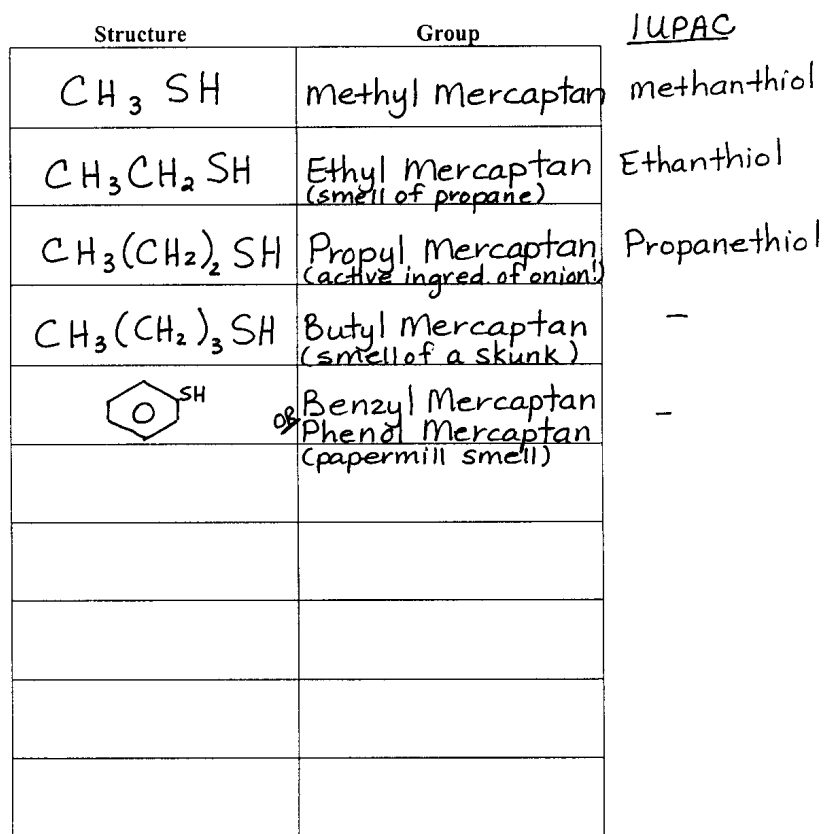 Structure Group IUPAC
CH₃ SH methyl Mercaptan methanthiol
CH₃CH₂ SH Ethyl Mercaptan Ethanthiol
(smell of propane)
CH₃(CH₂)₂ SH Propyl Mercaptan Propanethiol
(active ingred. of onion!)
CH₃(CH₂)₃SH Butyl Mercaptan –
(smell of a skunk)
SH Benzyl Mercaptan –
OR Phenol Mercaptan
(papermill smell)